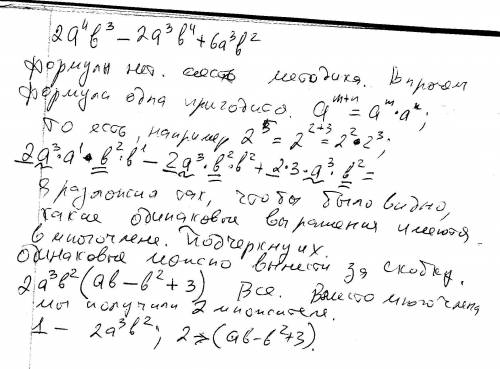 2a⁴b³ − 2a³b⁴ + 6a³b²
Формулы нет. есть методика. Впрочем
формула одна пригодится. aᵐ⁺ⁿ = aᵐ·aⁿ;
То есть, например 2⁵ = 2²⁺³ = 2²·2³;
2a³·a¹·b²·b¹ − 2a³·b²·b² + 2·3·a³·b² =
Я разложил так, чтобы было видно,
какие одинаковые выражения имеются
в многочлене. Подчеркну их.
одинаковые можно вынести за скобку.
2a³b²(ab−b²+3) Все. Вместо многочлена
мы получили 2 множителя.
1 − 2a³b²; 2 → (ab−b²+3).